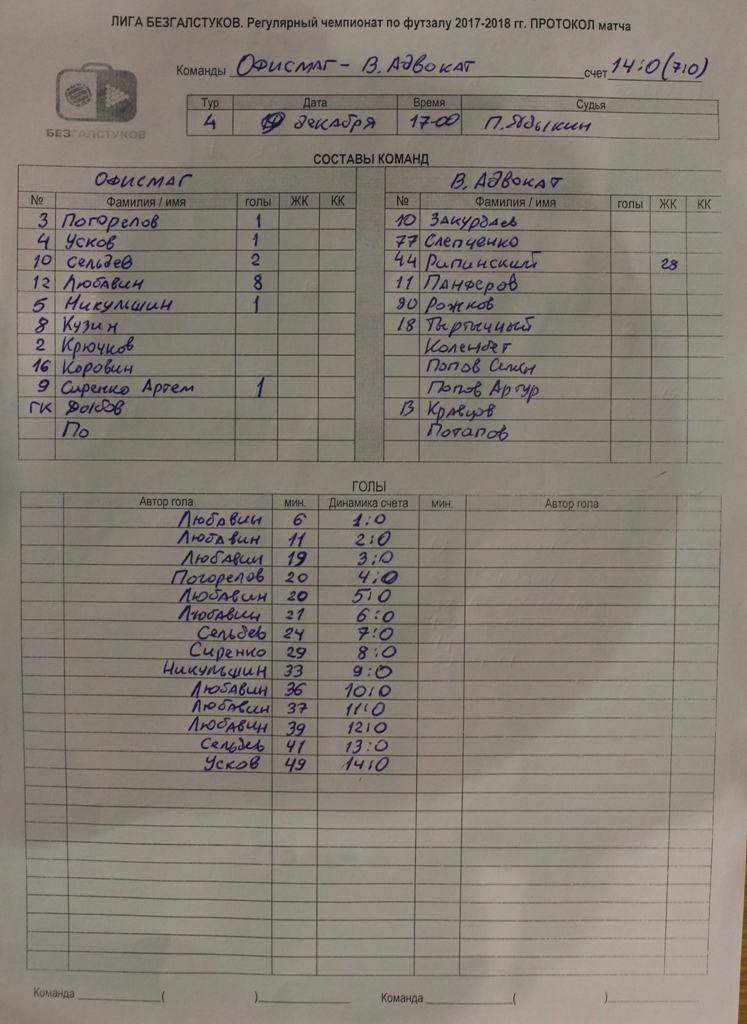 ЛИГА БЕЗГАЛСТУКОВ. Регулярный чемпионат по футзалу 2017-2018 гг. ПРОТОКОЛ матча
Команды Офисмаг - В. Адвокат счет 14:0 (7:0)
БЕЗГАЛСТУКОВ
Тур Дата Время Судья
4 декабря 17-00 П. Ядыкин
СОСТАВЫ КОМАНД
Офисмаг В. Адвокат
№ Фамилия / имя голы ЖК КК № Фамилия / имя голы ЖК КК
3 Погорелов 1 10 Закурдаев
4 Усков 1 77 Слепченко
10 Сельдев 2 44 Рипинский 28
12 Любавин 8 11 Панферов
5 Никульшин 1 90 Рожков
8 Кузин 18 Тыртычный
2 Крючков Колембет
16 Коровин Попов Семен
9 Сиренко Артем 1 Попов Артур
ГК В Кравцов
По Потапов
ГОЛЫ
Автор гола мин. Динамика счета мин. Автор гола
Любавин 6 1:0
Любавин 11 2:0
Любавин 19 3:0
Погорелов 20 4:0
Любавин 20 5:0
Любавин 21 6:0
Сельдев 24 7:0
Сиренко 29 8:0
Никульшин 33 9:0
Любавин 36 10:0
Любавин 37 11:0
Любавин 39 12:0
Сельдев 41 13:0
Усков 49 14:0
Команда ____________( )____________ Команда ____________( )____________